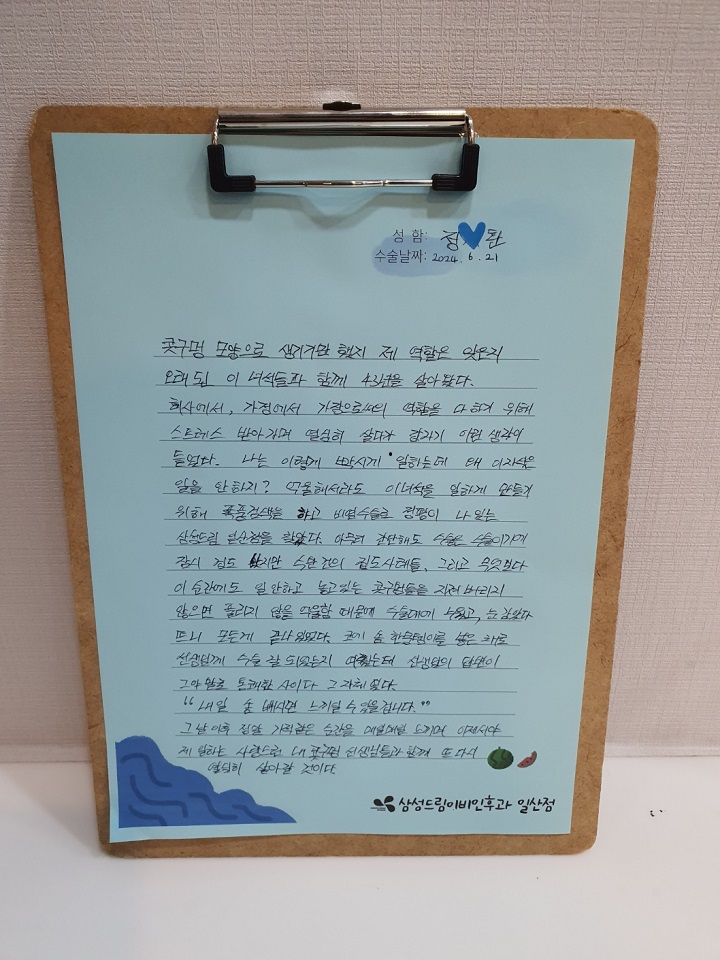 성 함: 정 탄
수술날짜: 2024. 6. 21
콧구멍 모양으로 생기기만 했지 제 역할은 잊은지
오래 된 이 녀석들과 함께 43년을 살아왔다.
회사에서, 가정에서 가장으로써의 역할을 다 하기 위해
스트레스 받아가며 열심히 살다가 갑자기 이런 생각이
들었다. 나는 이렇게 빡시게 일하는데 왜 이자식은
일을 안 하지? 억울해서라도 이녀석을 일하게 만들기
위해 폭풍검색을 하고 비염수술로 정평이 나 있는
삼성드림 일산점을 찾았다. 아무리 간단해도 수술은 수술이기에
잠시 겁도 났지만 수만 건의 집도사례들, 그리고 무엇보다
이 순간에도 일 안하고 놀고있는 콧구멍들을 지져버리지
않으면 풀리지 않을 억울함 때문에 수술대에 누웠고, 눈 감았다
뜨니 모든게 끝나 있었다. 코에 솜 한뭉텅이를 넣은 채로
선생님께 수술 잘 되었는지 여쭸는데 선생님의 답변이
그야말로 통쾌한 사이다 그 자체였다.
"내일 솜 빼시면 느끼실 수 있을겁니다."
그날 이후 정말 기적같은 순간을 매일매일 느끼며 이제서야
제 일하는 사랑스런 내 콧구멍 선생님들과 함께 또 다시
열심히 살아갈 것이다.
삼성드림이비인후과 일산점